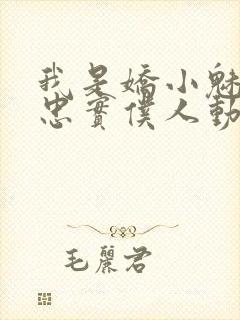 我是嬌小魅
忠實僕人動
毛麗君